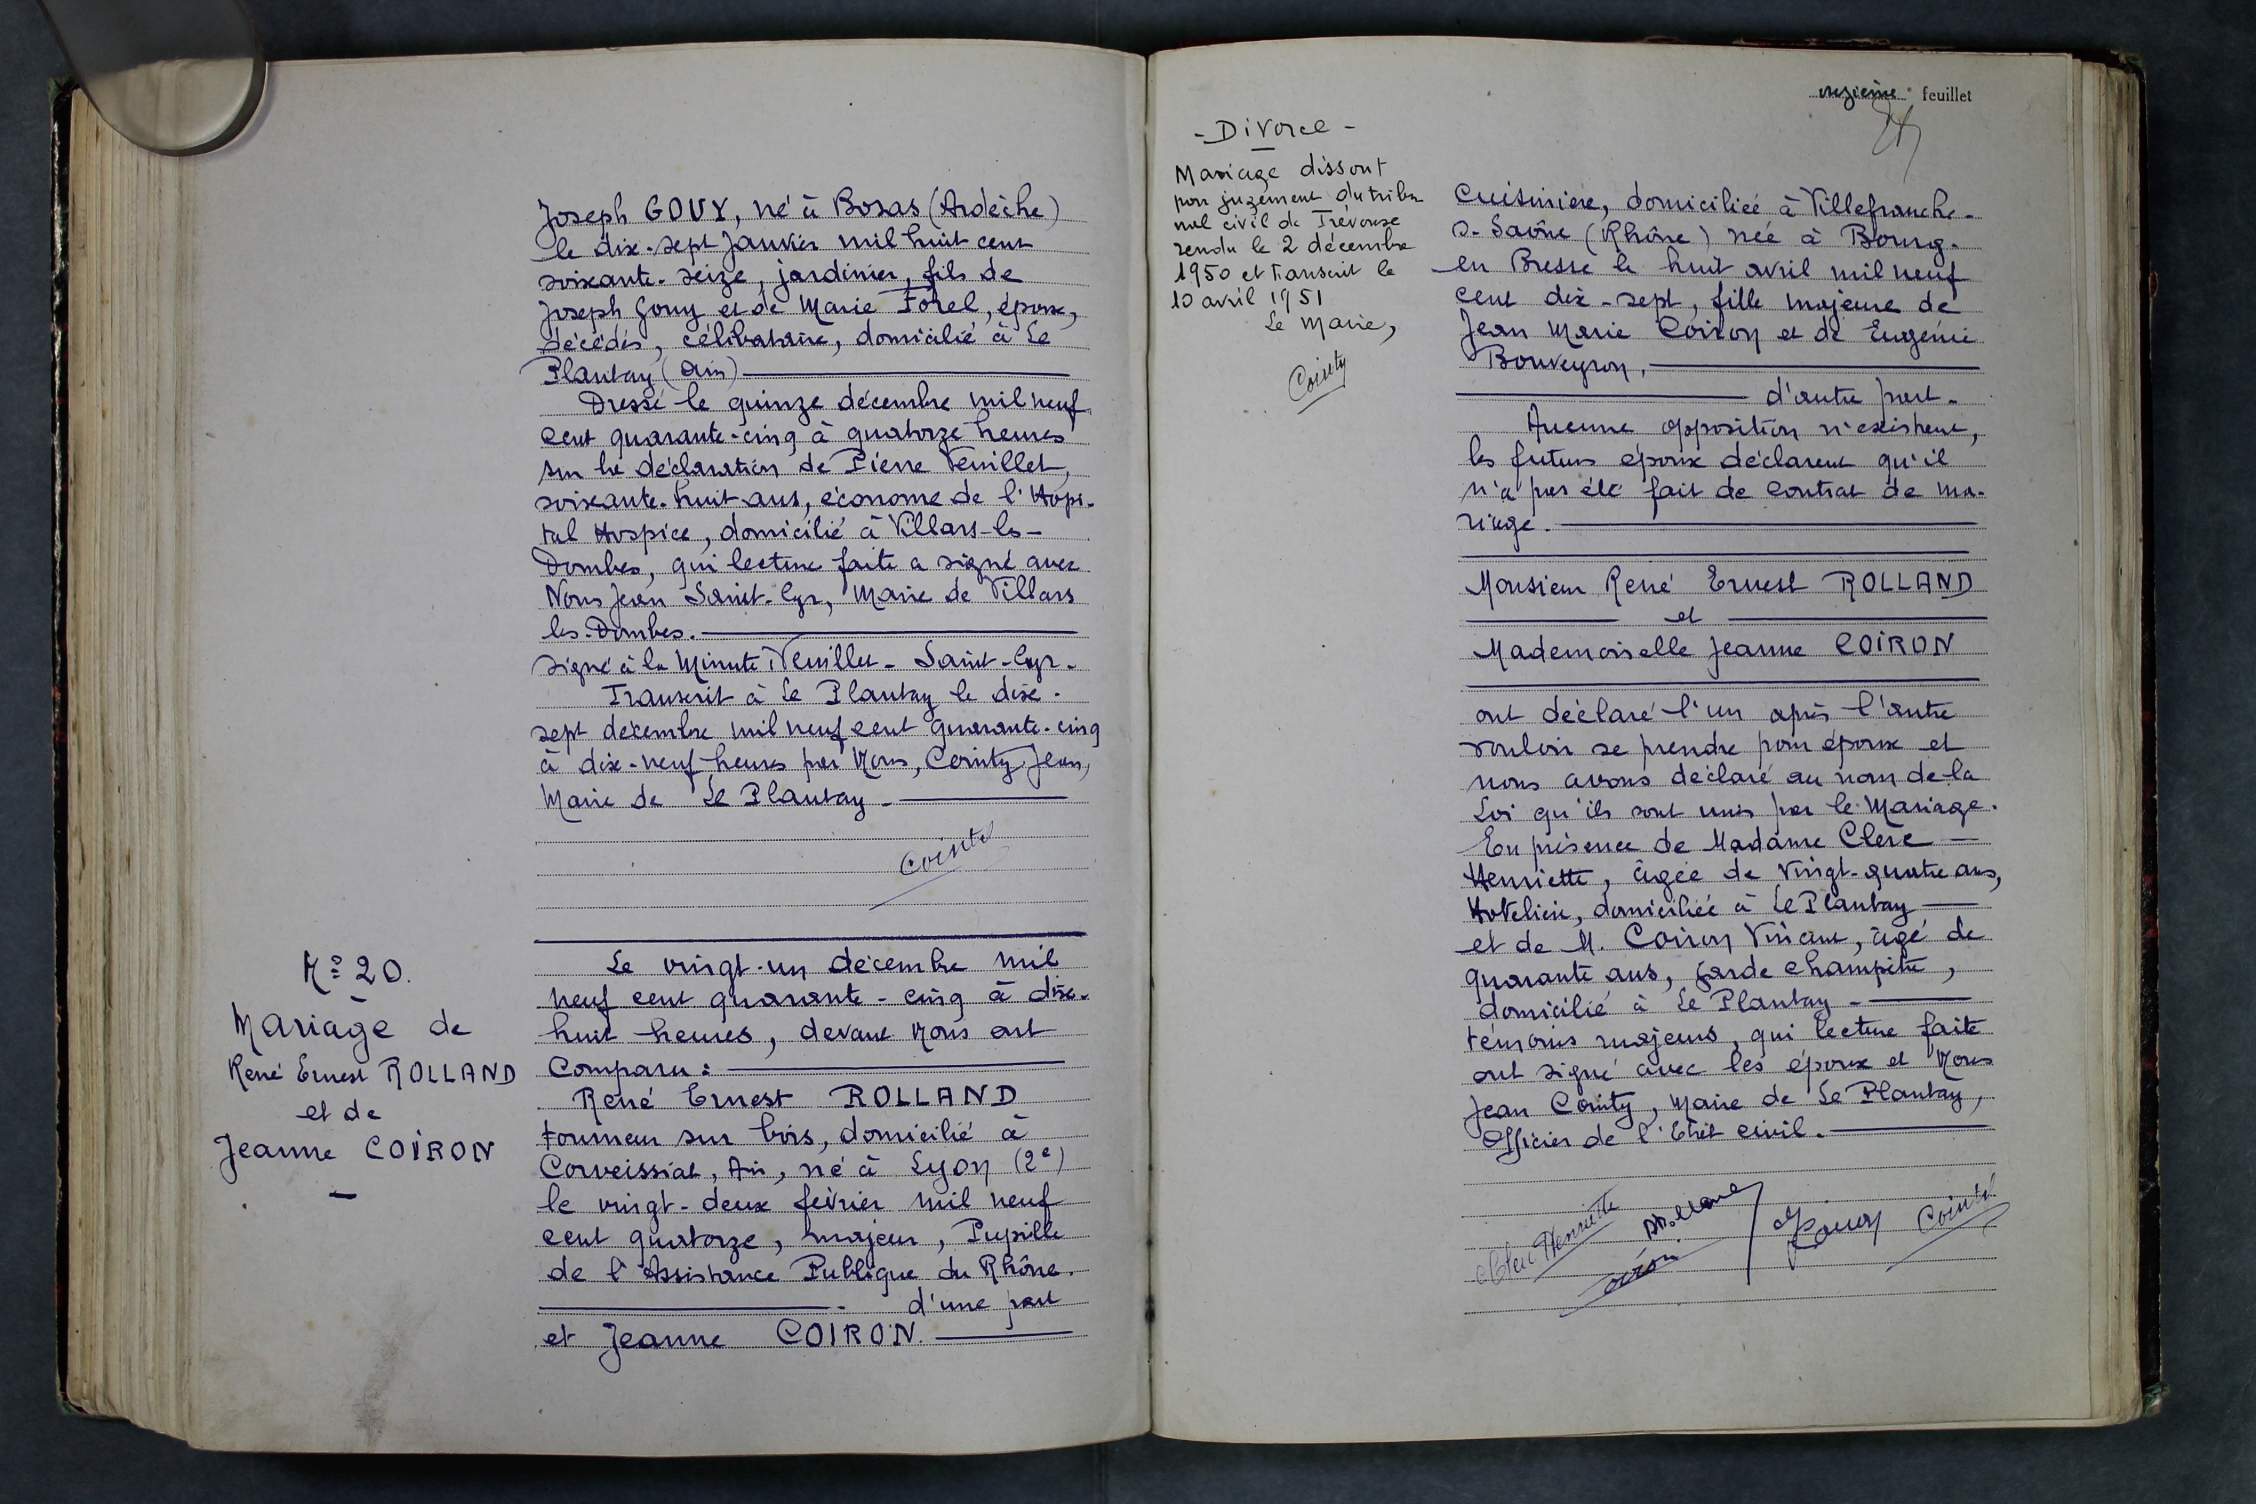 Joseph GOUY, né à Bozas (Ardèche)
le dix-sept Janvier mil huit cent
soixante-seize, jardinier, fils de
Joseph Gouy et de Marie Forel, époux,
décédés, célibataire, domicilié à Le
Plantay (Ain)
Dressé le quinze décembre mil neuf
cent quarante-cinq à quatorze heures
sur la déclaration de Pierre Veuillet,
soixante-huit ans, économe de l'Hopi-
tal Hospice, domicilié à Villars-les-
Dombes, qui lecture faite a signé avec
Nous Jean Saint-Cyr, Maire de Villars
les-Dombes.
Signé à la Minute, Veuillet - Saint-Cyr.
Transcrit à Le Plantay le dix-
sept décembre mil neuf cent quarante-cinq
à dix-neuf heures par Nous, Cointy Jean,
Maire de Le Plantay.
Cointy
No 20.
Mariage de
René Ernest ROLLAND
et de
Jeanne COIRON
Le vingt-un décembre mil
neuf cent quarante-cinq à dix-
huit heures, devant Nous ont
Comparu:
René Ernest ROLLAND
tourneur sur bois, domicilié à
Corveissiat, Ain, né à Lyon (2e)
le vingt-deux février mil neuf
cent quatorze, majeur, Pupille
de l'Assistance Publique du Rhône.
d'une part
et Jeanne COIRON.
onzième feuillet
- Divorce -
Mariage dissout
par jugement du tribu
nal civil de Trévoux
rendu le 2 décembre
1950 et transcrit le
10 avril 1951
Le Maire,
Cointy
Cuisinière, domiciliée à Villefranche-
s-Saône (Rhône) née à Bourg-
en Bresse le huit avril mil neuf
cent dix-sept, fille majeure de
Jean Marie Coiron et de Eugénie
Bouveyron,
d'autre part.
Aucune opposition n'existant,
les futurs époux déclarent qu'il
n'a pas été fait de Contrat de ma-
riage.
Monsieur René Ernest ROLLAND
et
Mademoiselle Jeanne COIRON
ont déclaré l'un après l'autre
vouloir se prendre pour époux et
nous avons déclaré au nom de la
Loi qu'ils sont unis par le Mariage.
En présence de Madame Clerc
Henriette, âgée de Vingt-quatre ans,
Hotelière, domiciliée à Le Plantay
et de M. Coiron Vincent, âgé de
quarante ans, garde champêtre,
domicilié à Le Plantay -
témoins majeurs, qui lecture faite
ont signé avec les époux et Nous
Jean Cointy, Maire de Le Plantay,
Officier de l'Etat civil.
Clerc Henriette
Rolland
Coiron
Coiron
Cointy